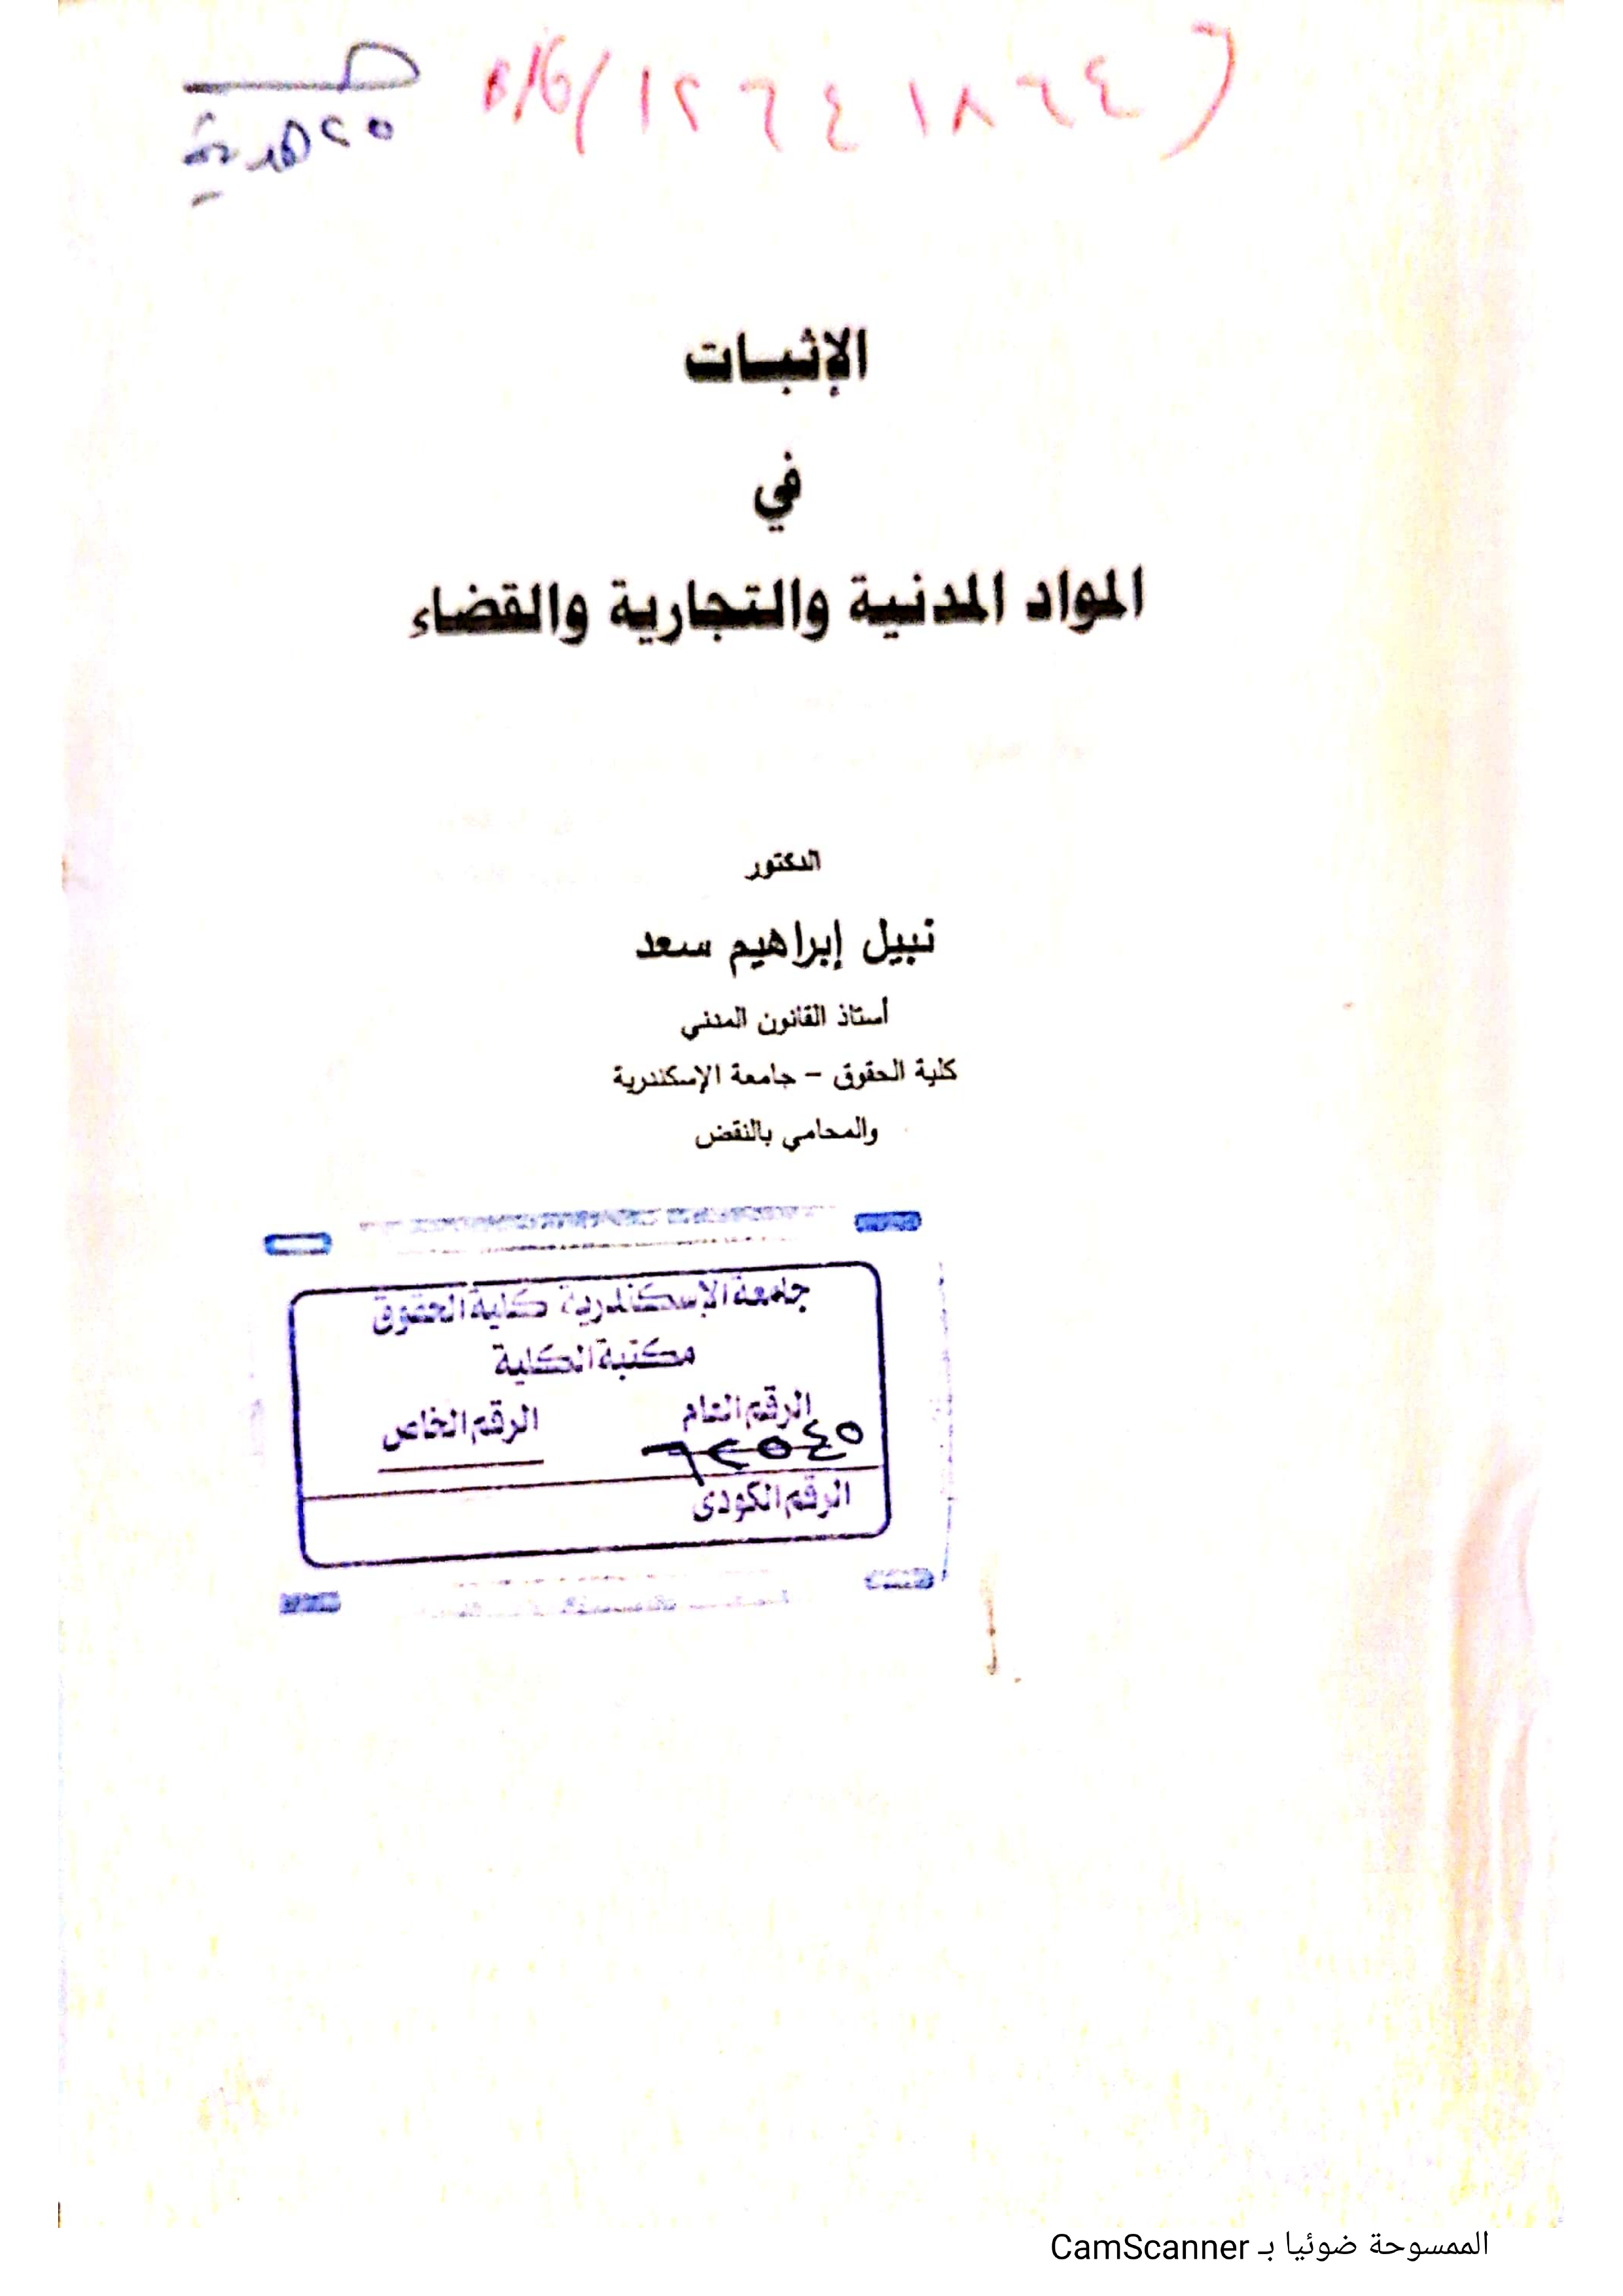 الإثبات
في
المواد المدنية والتجارية والقضاء
الدكتور
نبيل إبراهيم سعد
أستاذ القانون المدني
كلية الحقوق – جامعة الإسكندرية
والمحامي بالنقض
جامعة الإسكندرية كلية الحقوق
مكتبة الكلية
الرقم العام الرقم الخاص
الرقم الكودى
الممسوحة ضوئيا بـ CamScanner